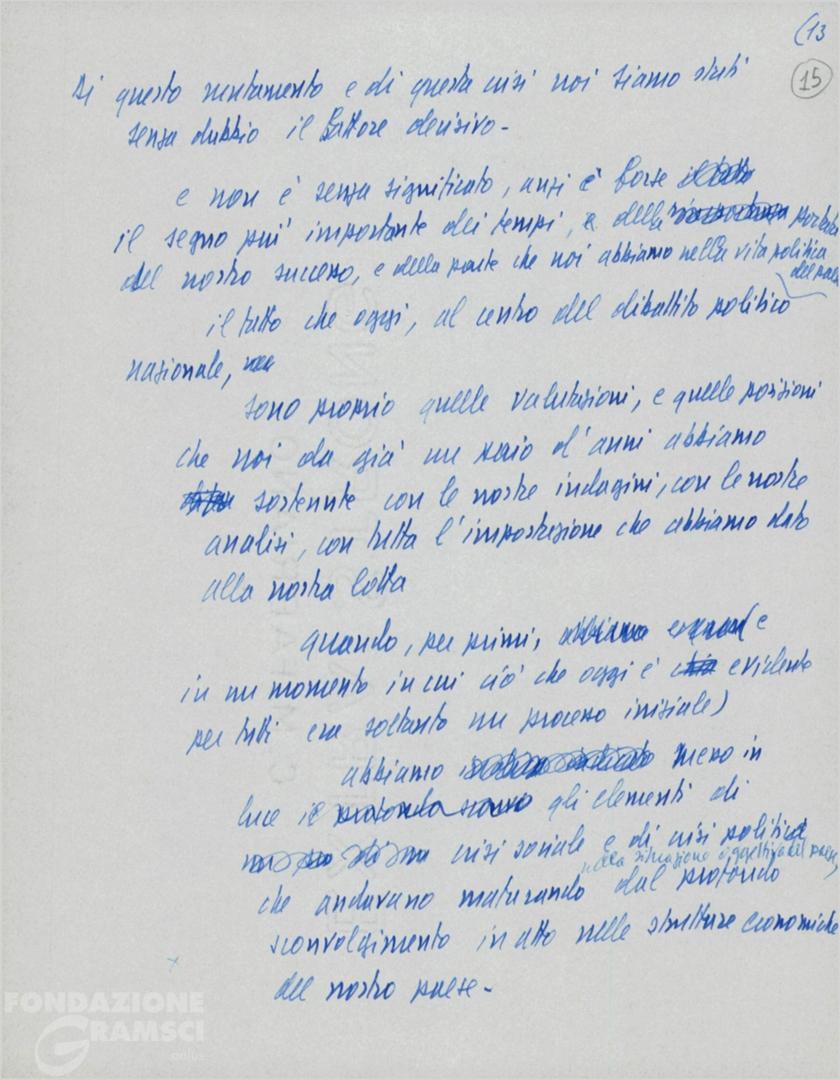 (13
15
di questo mutamento e di questa crisi noi siamo stati
senza dubbio il fattore decisivo -
e non è senza significato, anzi è forse
il segno più importante dei tempi, e della portata
del nostro successo, e della parte che noi abbiamo nella vita politica
del paese
il fatto che oggi, al centro del dibattito politico
nazionale,
sono proprio quelle valutazioni, e quelle posizioni
che noi da già un paio d'anni abbiamo
sostenute con le nostre indagini, con le nostre
analisi, con tutta l'impostazione che abbiamo dato
alla nostra lotta
quando, per primi, (e
in un momento in cui ciò che oggi è evidente
per tutti era soltanto un processo iniziale)
abbiamo messo in
luce gli elementi di
crisi sociale e di crisi politica
nella situazione oggettiva del paese,
che andavano maturando dal profondo
sconvolgimento in atto nelle strutture economiche
del nostro paese -
FONDAZIONE
GRAMSCI
onlus